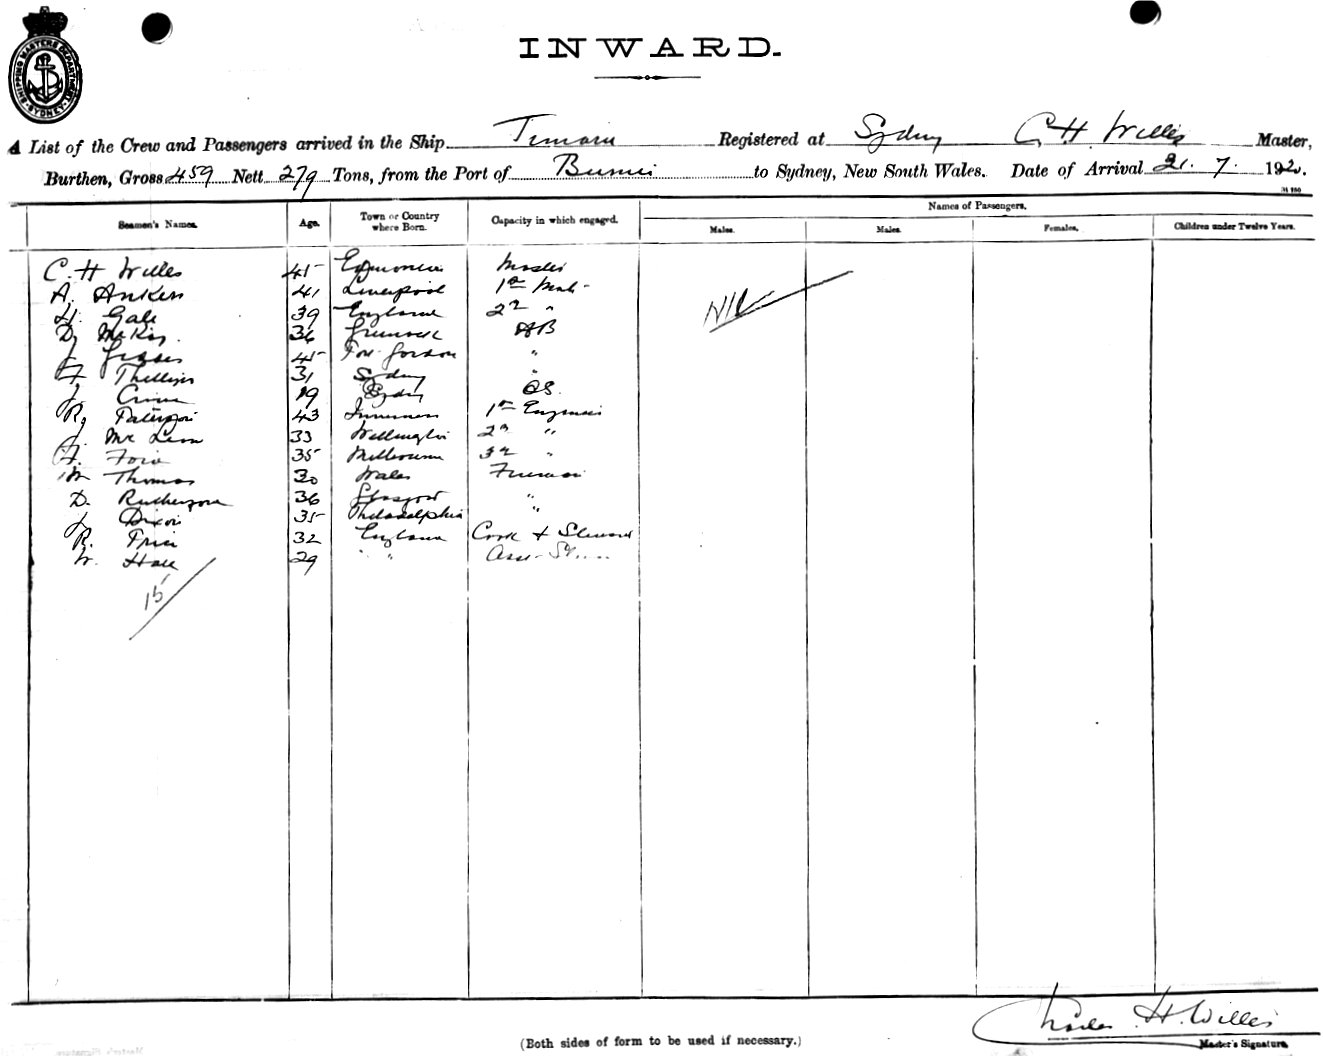 SHIPPING MASTERS DEPARTMENT SYDNEY
INWARD.
A List of the Crew and Passengers arrived in the Ship Registered at Sydney C. H. Willis Master,
Burthen, Gross 459 Nett 279 Tons, from the Port of to Sydney, New South Wales. Date of Arrival 21. 7. 1920.
Seamen's Names. Age. Town or Country where Born. Capacity in which engaged. Names of Passengers.
Males. Males. Females. Children under Twelve Years.
C. H Willis 45 Master
A. 41 Liverpool 1st Mate
Gale 39 England 2nd "
D. McKay. 36 Greenock AB
J. Fraser 45 Gordon "
Phillips 31 Sydney "
J. 19 Sydney OS.
R. Paterson 43 Inverness 1st Engineer
J. 33 Wellington 2nd "
Ford 35 Melbourne 3rd "
W Thomas 30 Wales Fireman
D. Rutherford 36 Glasgow "
J. Dixon 35 Philadelphia "
R. Price 32 England Cook & Steward
W. Hall 29 " "
NIL
15
Charles H. Willis
Master's Signature.
(Both sides of form to be used if necessary.)